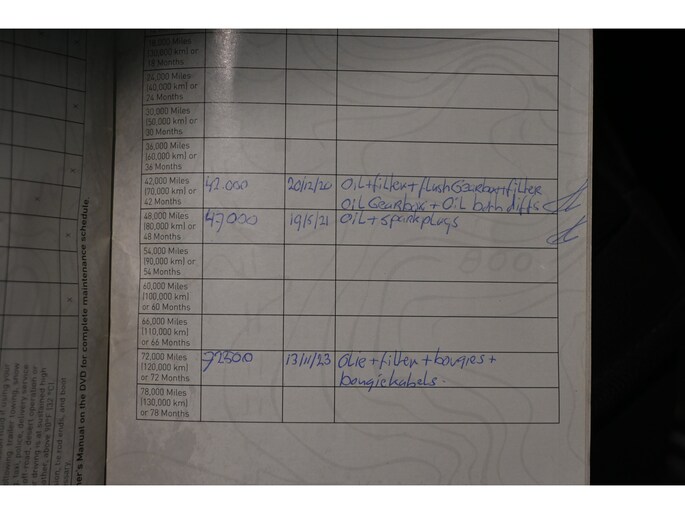 18,000 Miles
(30,000 km) or
18 Months
24,000 Miles
(40,000 km) or
24 Months
30,000 Miles
(50,000 km) or
30 Months
36,000 Miles
(60,000 km) or
36 Months
42,000 Miles
(70,000 km) or
42 Months
42.000
20/12/20
Oil+filter+flushGearbox+filter
Oil Gearbox + Oil both diffs
48,000 Miles
(80,000 km) or
48 Months
47000
19/5/21
Oil + sparkplugs
54,000 Miles
(90,000 km) or
54 Months
60,000 Miles
(100,000 km)
or 60 Months
66,000 Miles
(110,000 km)
or 66 Months
72,000 Miles
(120,000 km)
or 72 Months
72500
13/11/23
Olie + filter + bougies +
bougiekabels.
78,000 Miles
(130,000 km)
or 78 Months
ner's Manual on the DVD for complete maintenance schedule.
trailer towing, snow
taxi, police, delivery service
off-road, desert operation or
driving is at sustained high
above 90°F (32 °C).
tie rod ends, and boot